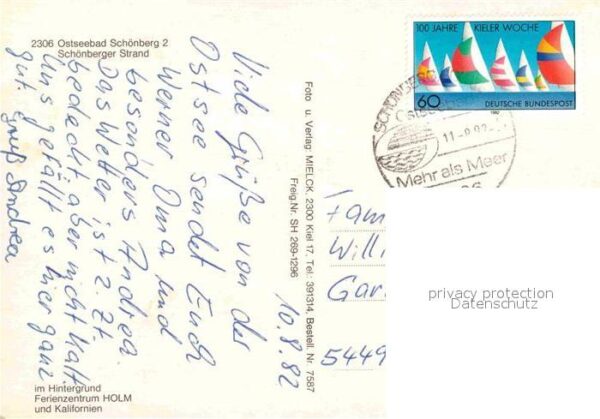 2306 Ostseebad Schönberg 2
Schönberger Strand
Viele Grüße von der
Ostsee sendet Euch
Werner Oma und
besonders Andrea.
Das Wetter ist z.Zt.
bedeckt aber nicht kalt.
Uns gefällt es hier ganz
gut. Gruß Andrea
10.8.82
im Hintergrund
Ferienzentrum HOLM
und Kalifornien
Foto u. Verlag: MIELCK, 2300 Kiel 17, Tel.: 391314, Bestell Nr. 7587
Freig.Nr. SH 269-1296
100 JAHRE KIELER WOCHE
60 DEUTSCHE BUNDESPOST
1982
SCHÖNBERG
Ostseebad
Mehr als Meer
Fam
Willi
Gar
5449
privacy protection
Datenschutz